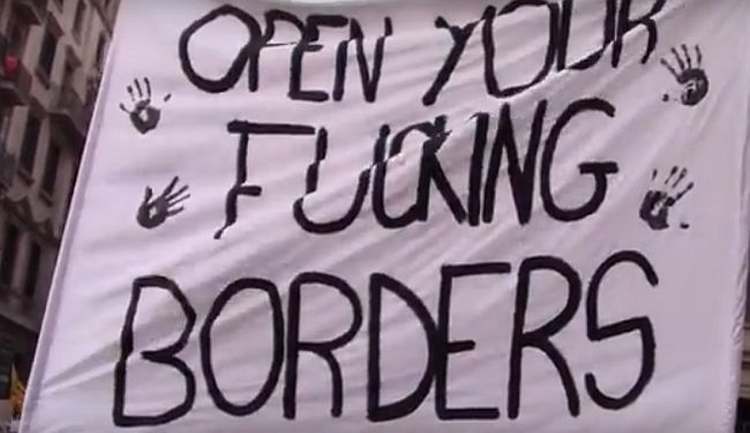 OPEN YOUR
FUCKING
BORDERS